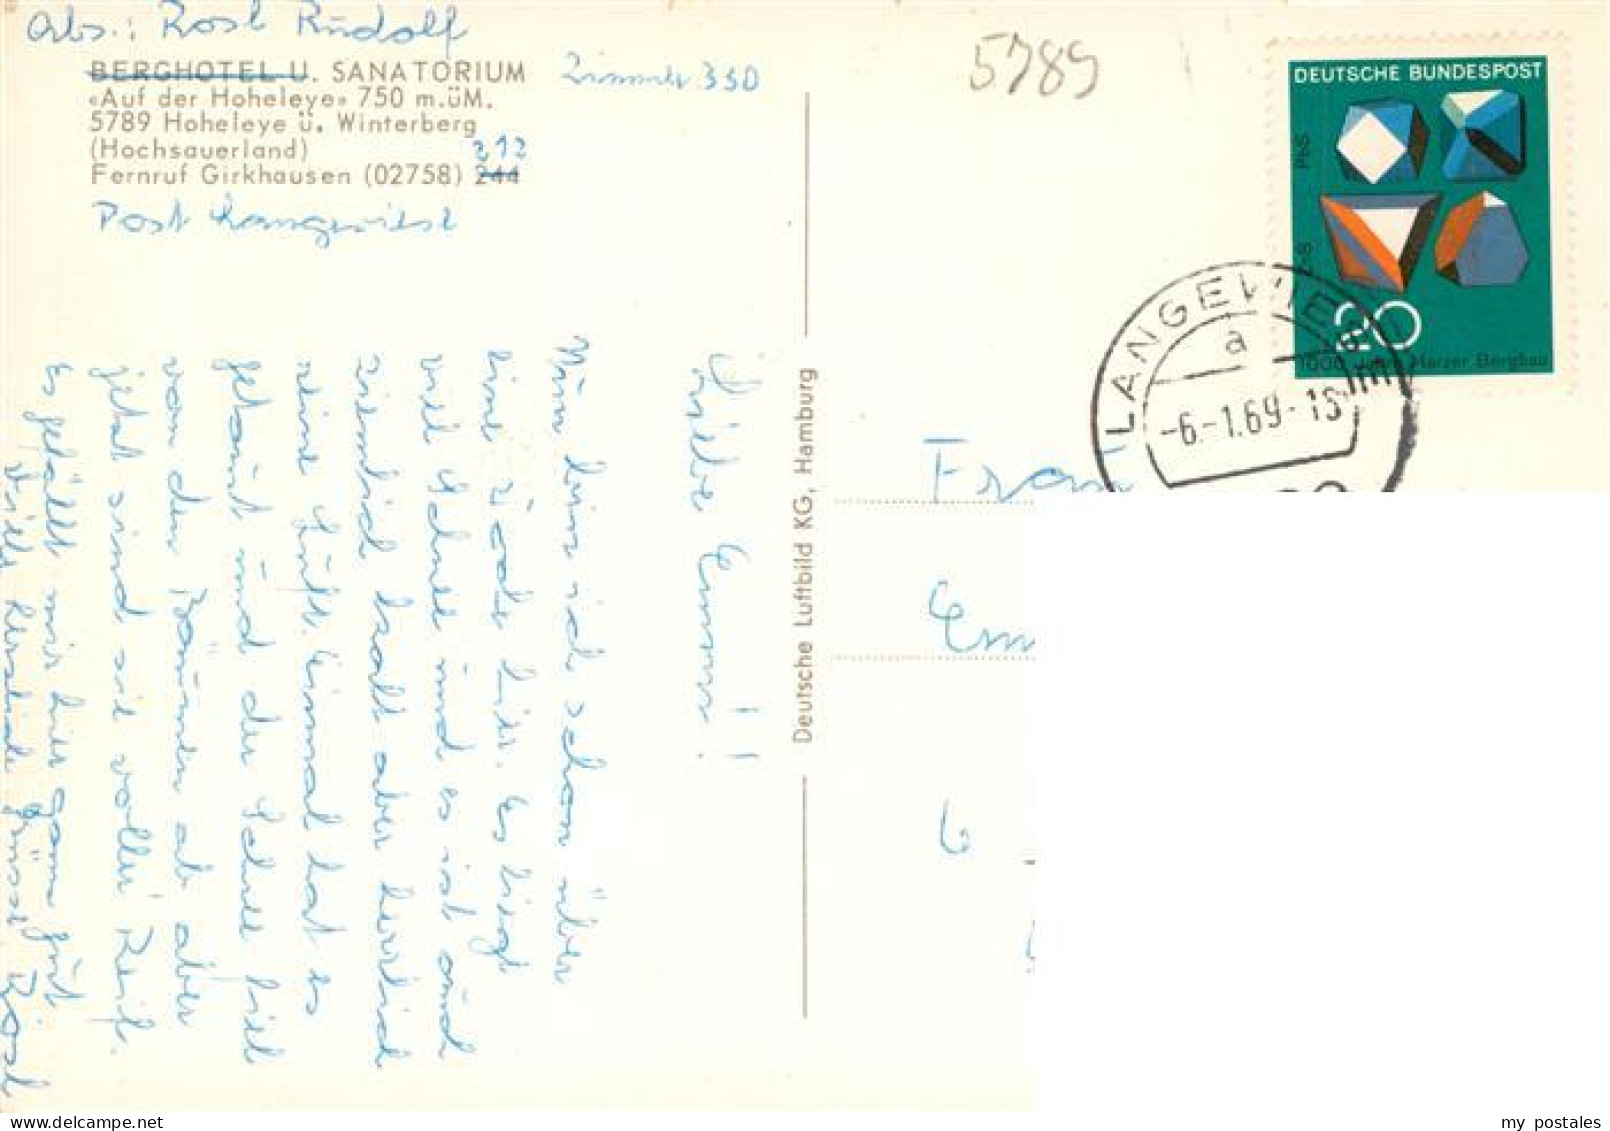 Abs.: Rosl Rudolf
BERGHOTEL U. SANATORIUM
«Auf der Hoheleye» 750 m.üM.
5789 Hoheleye ü. Winterberg
(Hochsauerland)
212
Fernruf Girkhausen (02758) 244
Post Langewiese
Zimmer 330
5789
DEUTSCHE BUNDESPOST
PbS
20
1000 Jahre Harzer Bergbau
LANGEWIESE
a
-6.-1.69-18
Deutsche Luftbild KG, Hamburg
Frau
Em
6
Liebe Emmi!
Nun bin ich schon über
eine Woche hier. Es liegt
viel Schnee und es ist auch
ziemlich kalt aber herrlich
reine Luft. Einmal hat es
getaut und der Schnee fiel
von den Bäumen ab aber
jetzt sind sie voller Reif.
Es gefällt mir hier ganz gut
Viele herzliche Grüsse Rosl